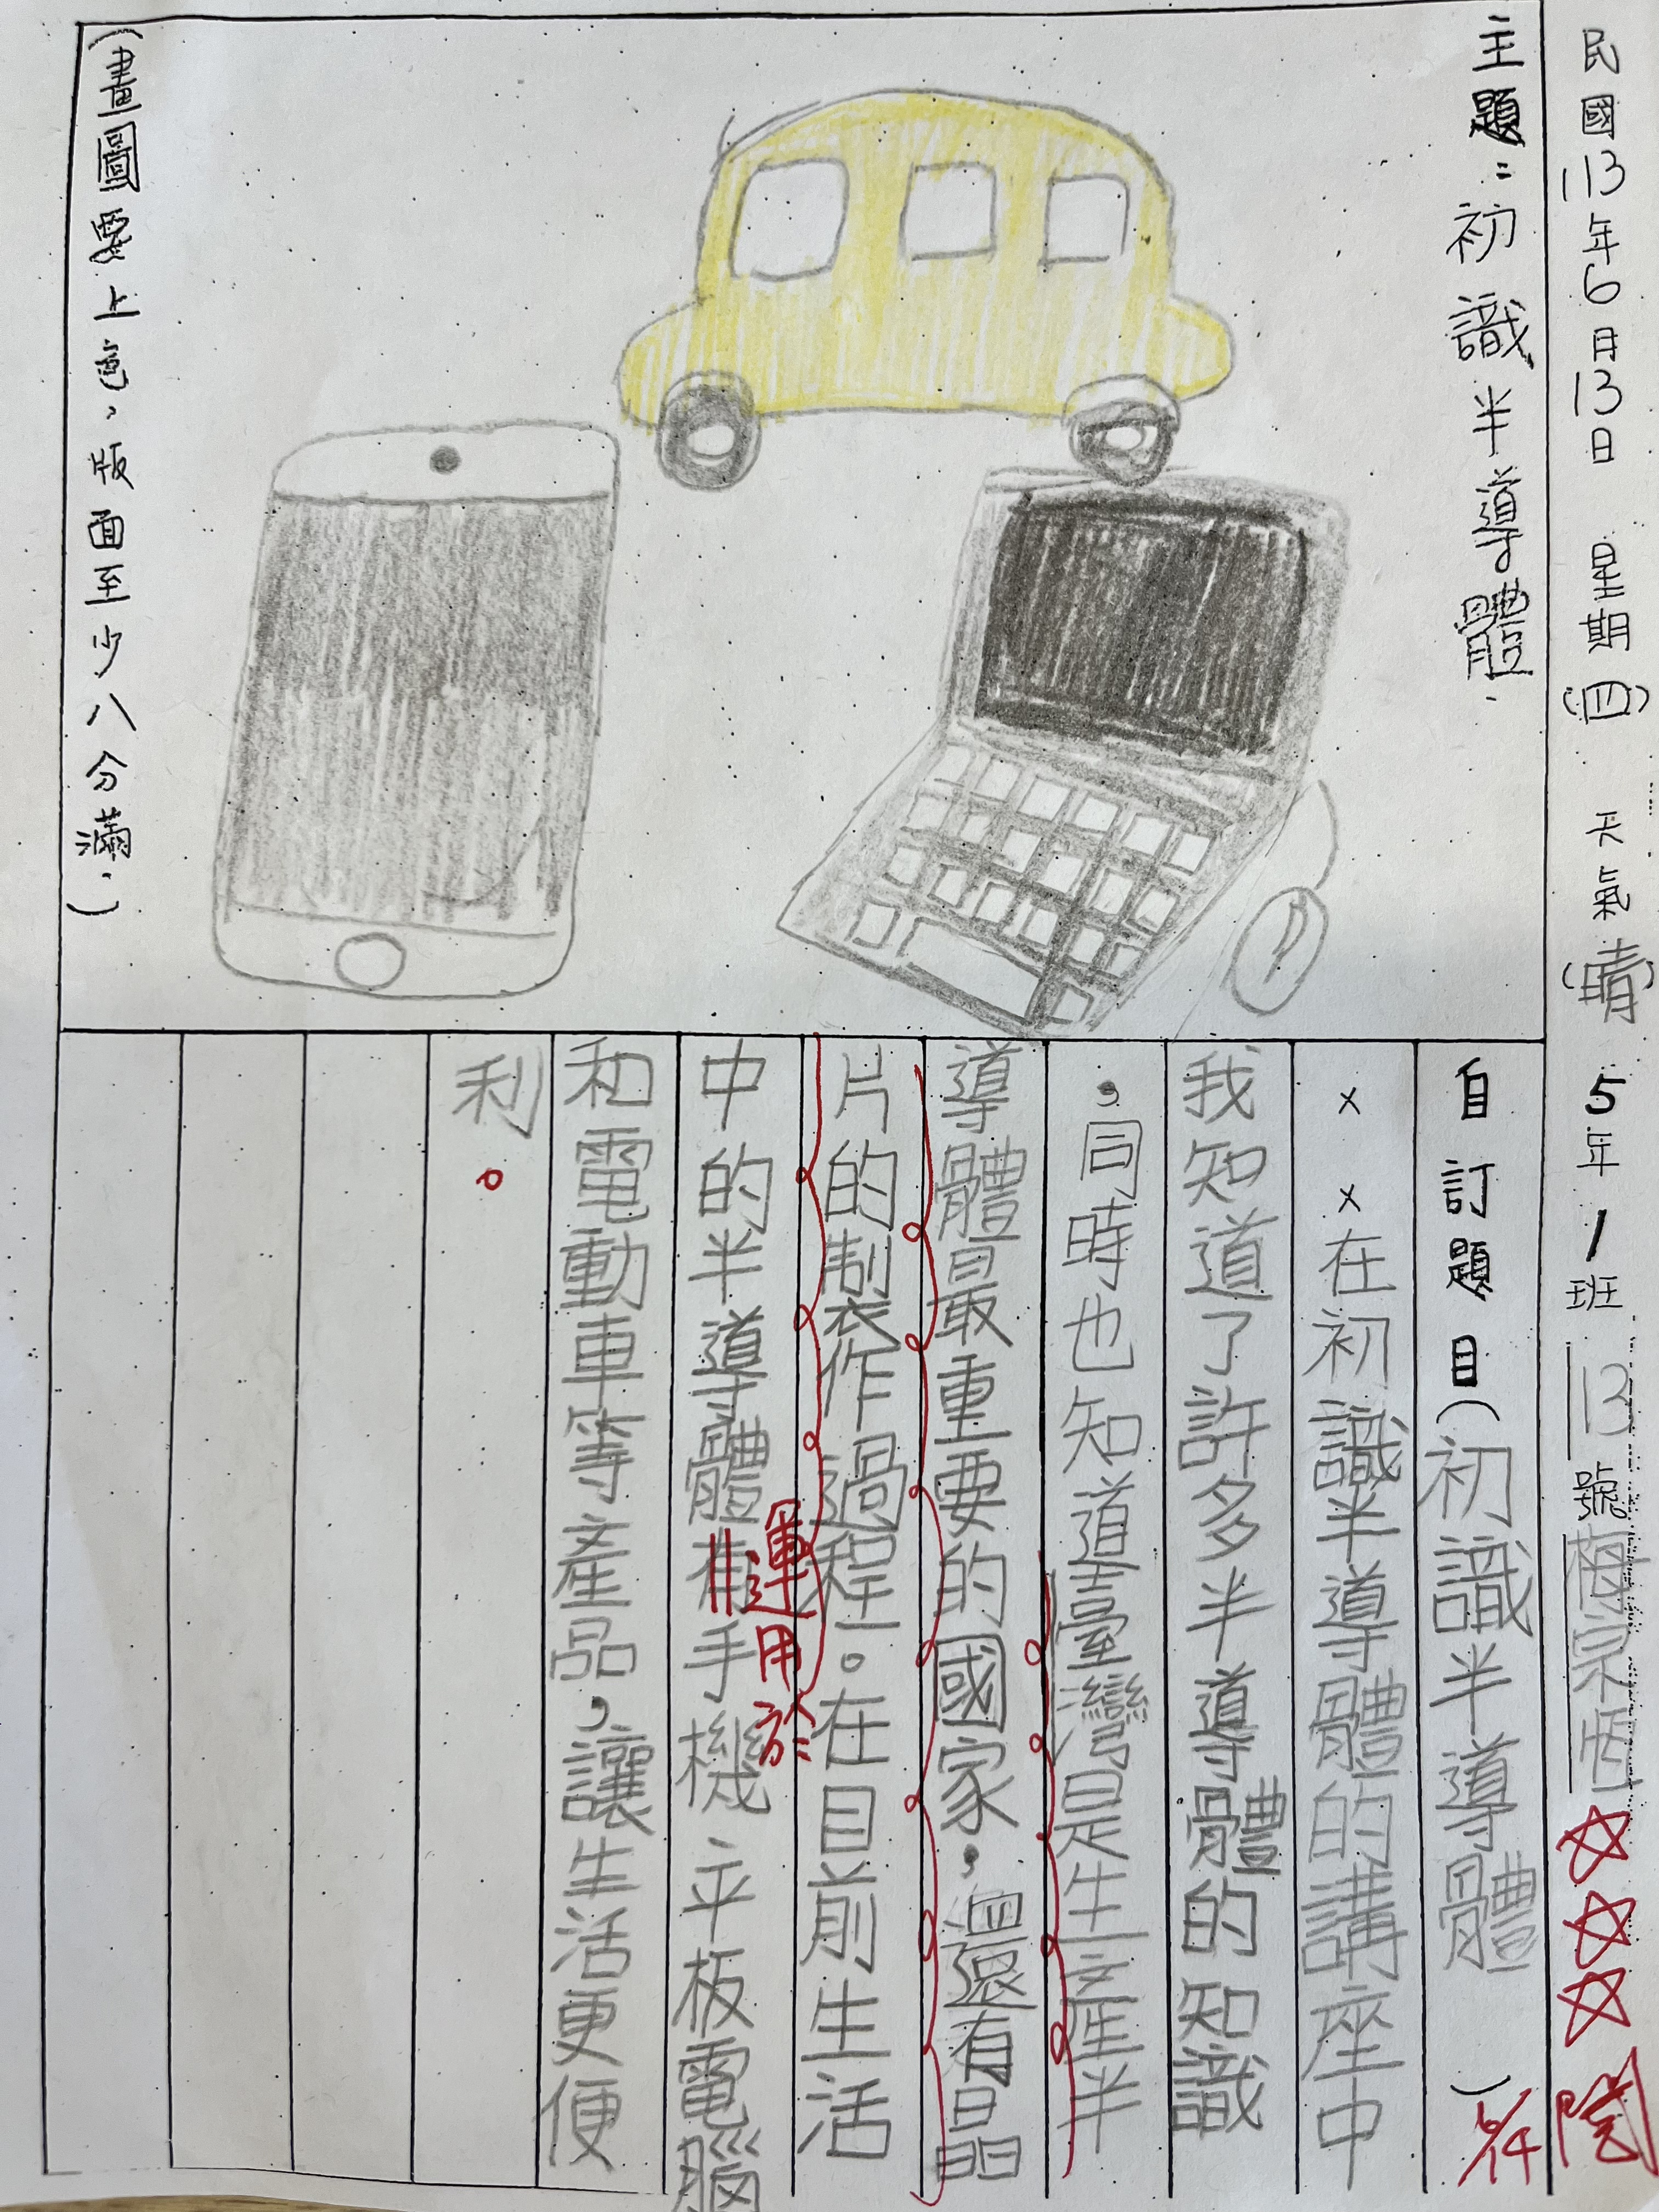 民國113年6月13日 星期(四) 天氣(晴) 5年1班13號
閱
主題:初識半導體.
(畫圖要上色,版面至少八分滿.)
自訂題目(初識半導體)
6/14
××在初識半導體的講座中
我知道了許多半導體的知識
,同時也知道臺灣是生產半
導體最重要的國家,還有晶
片的製作過程。在目前生活
中的半導體有手機平板電腦
運用於
和電動車等產品,讓生活更便
利。